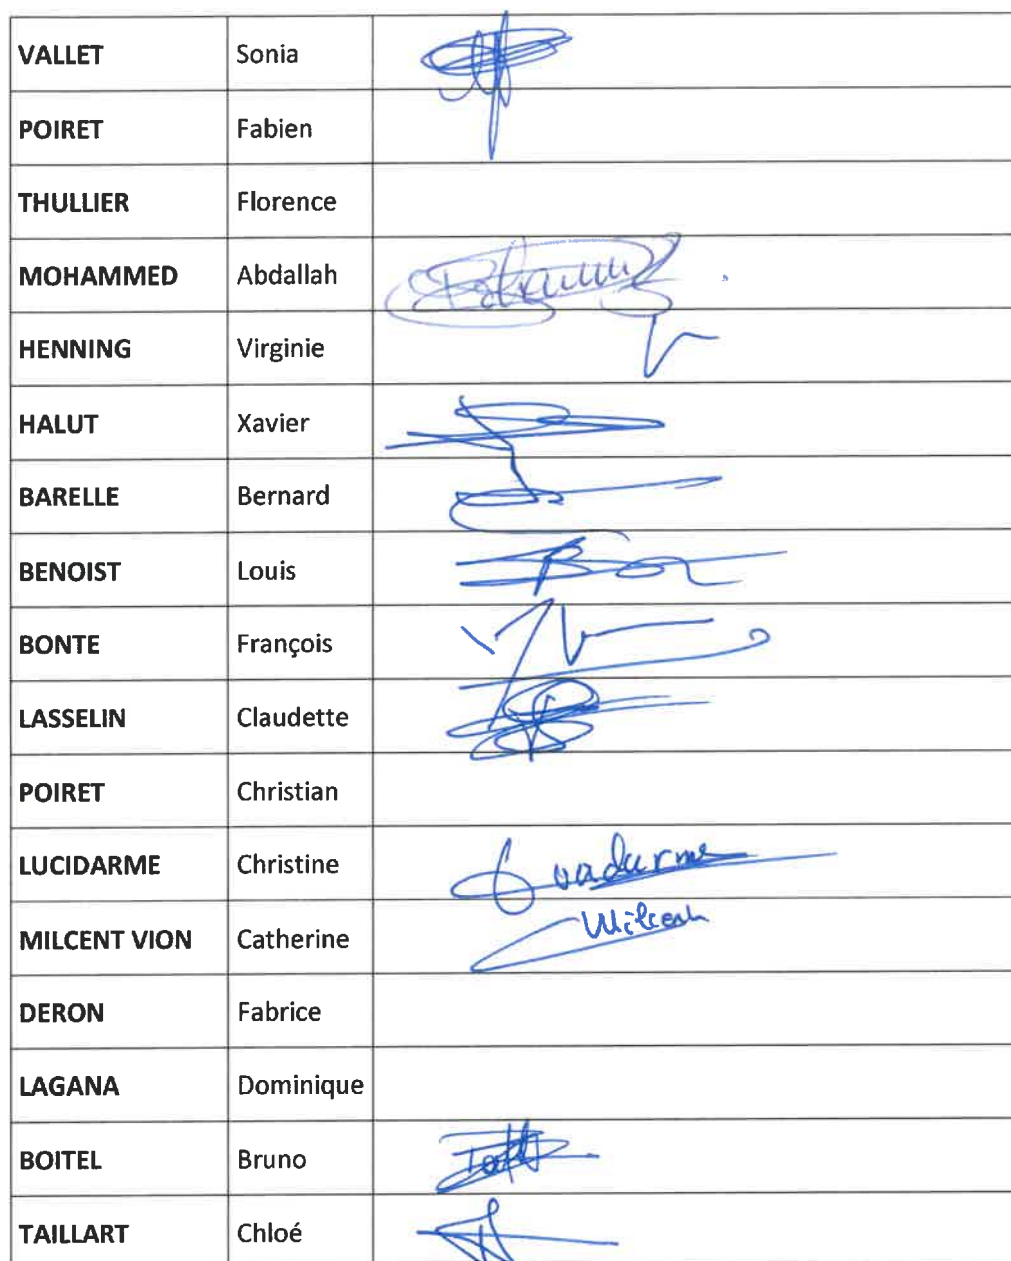 VALLET Sonia
POIRET Fabien
THULLIER Florence
MOHAMMED Abdallah
HENNING Virginie
HALUT Xavier
BARELLE Bernard
BENOIST Louis
BONTE François
LASSELIN Claudette
POIRET Christian
LUCIDARME Christine
MILCENT VION Catherine
DERON Fabrice
LAGANA Dominique
BOITEL Bruno
TAILLART Chloé